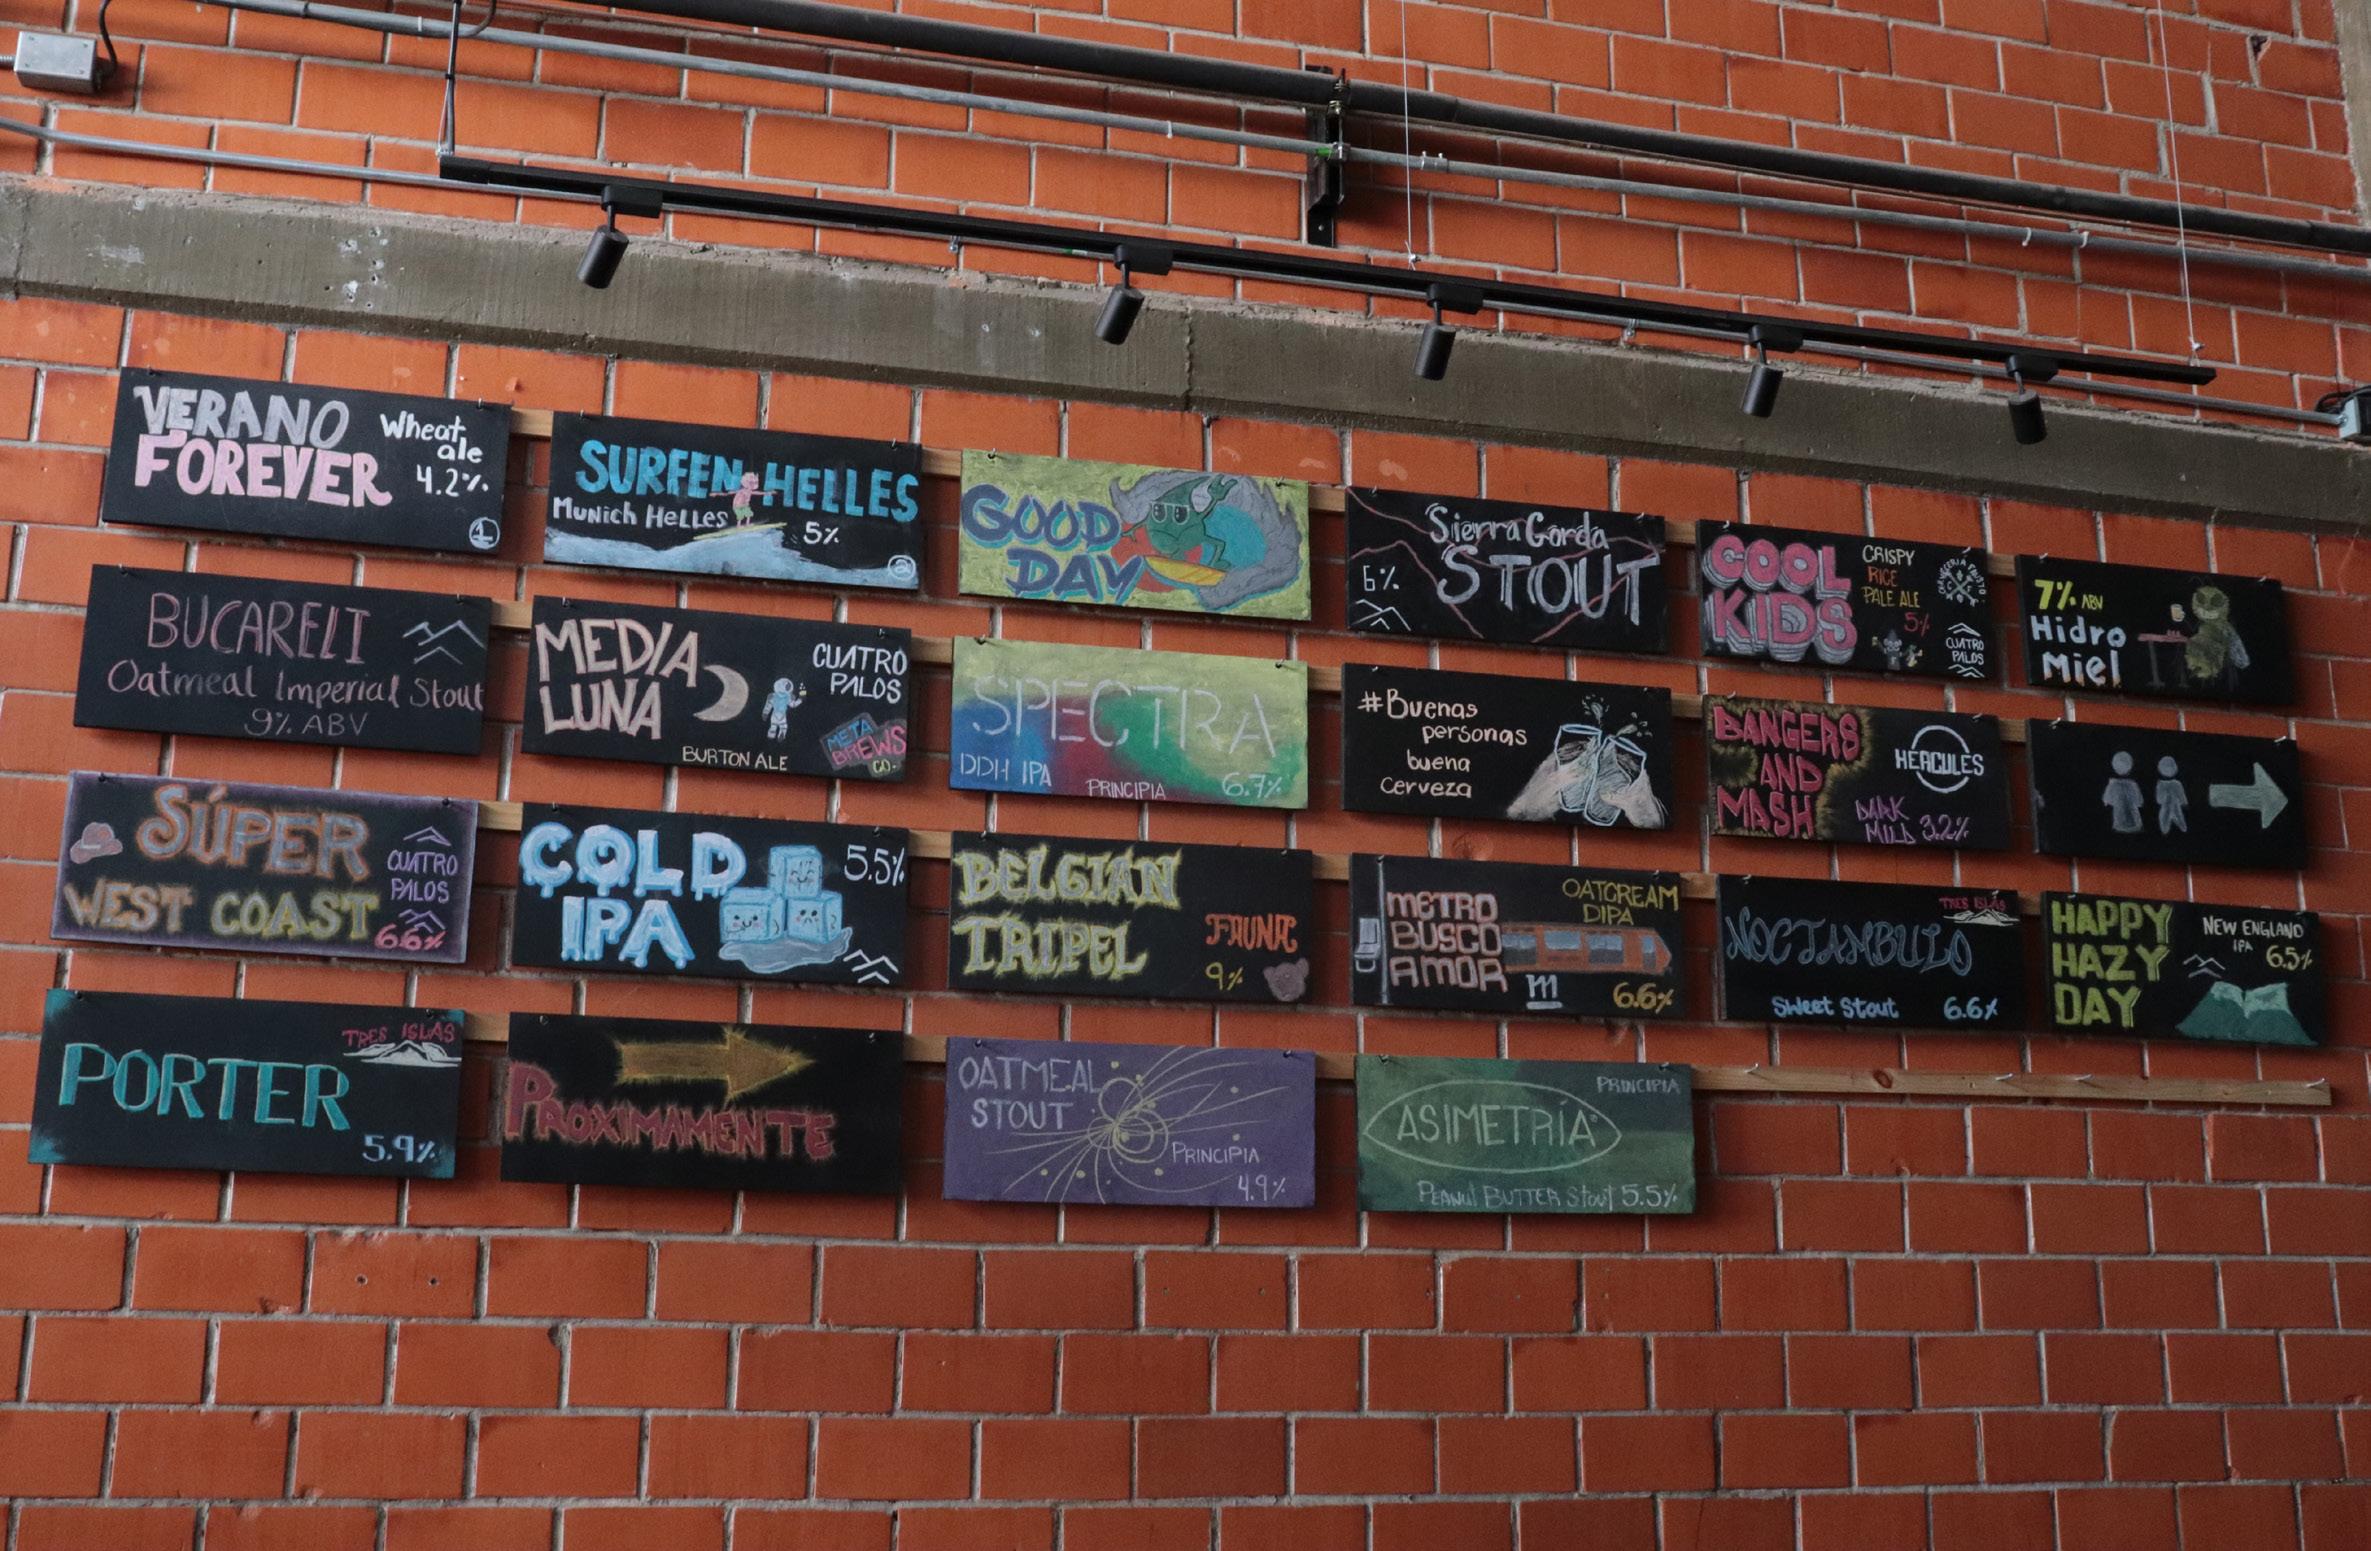 VERANO
FOREVER
Wheat
ale
4.2%
1
SURFEN HELLES
Munich Helles
5%
2
GOOD
DAY
Sierra Gorda
STOUT
6%
COOL
KIDS
CRISPY
RICE
PALE ALE
5%
CUATRO
PALOS
7% ABV
Hidro
Miel
BUCARELI
Oatmeal Imperial Stout
9% ABV
MEDIA
LUNA
CUATRO
PALOS
BURTON ALE
META
BREWS
CO.
SPECTRA
DDH IPA
PRINCIPIA
6.7%
#Buenas
personas
buena
cerveza
BANGERS
AND
MASH
HERCULES
DARK
MILD 3.2%
SÚPER
WEST COAST
CUATRO
PALOS
6.6%
COLD
IPA
5.5%
BELGIAN
TRIPEL
FAUNA
9%
METRO
BUSCO
AMOR
OATCREAM
DIPA
m
6.6%
TRES ISLAS
NOCTAMBULO
Sweet Stout 6.6%
HAPPY
HAZY
DAY
NEW ENGLAND
IPA
6.5%
TRES ISLAS
PORTER
5.9%
PROXIMAMENTE
OATMEAL
STOUT
PRINCIPIA
4.9%
PRINCIPIA
ASIMETRÍA
PEANUT BUTTER STOUT 5.5%